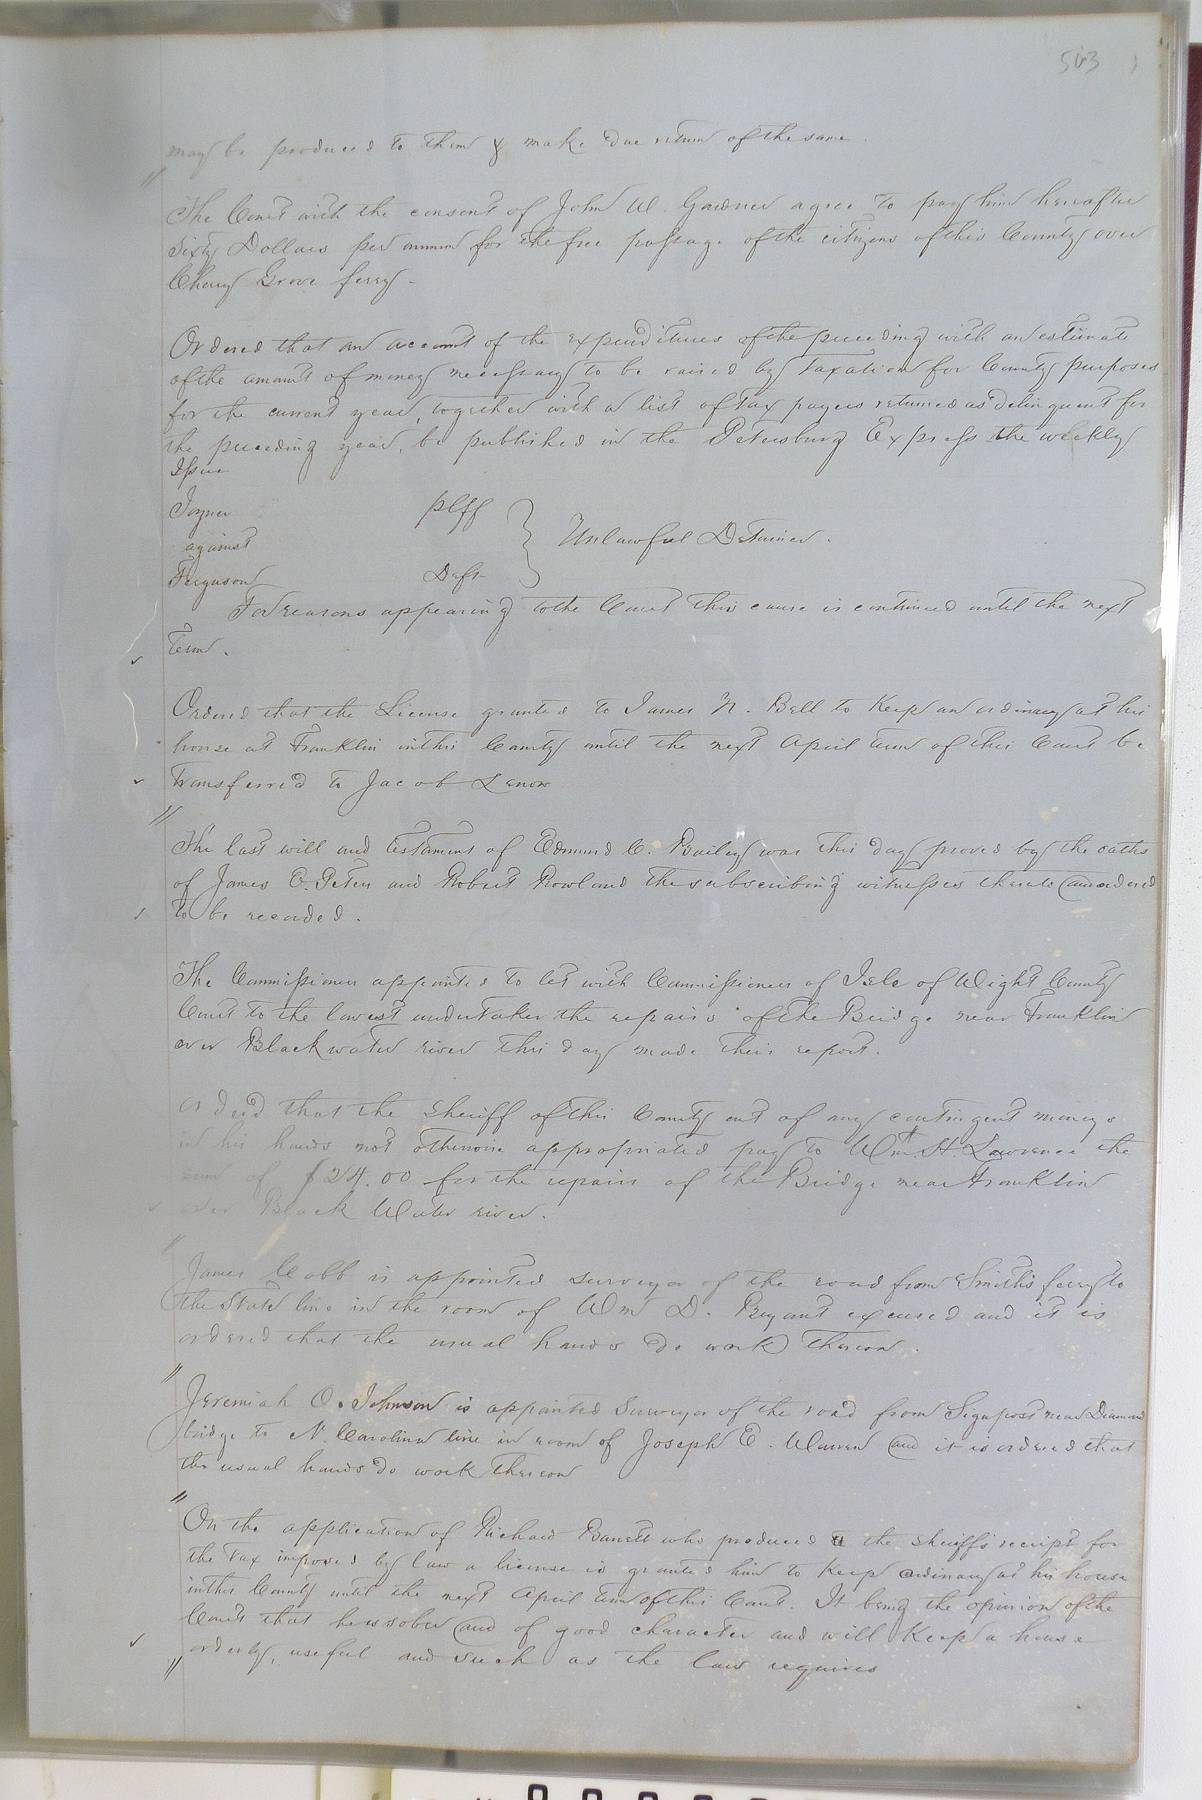 563
may be produced to them & make due return of the same.
The Court with the consent of John W. Gardner agree to pay him hereafter
Sixty Dollars per annum for the free passage of the citizens of this County over
Cherry Grove ferry -
Ordered that an account of the expenditures of the preceding with an estimate
of the amount of money necessary to be raised by Taxation for County purposes
for the current year, together with a list of tax payers returned as delinquent for
the preceding year, be published in the Petersburg Express the weekly
Issue
Joyner plff
against } Unlawful Detainer.
Ferguson Deft
For reasons appearing to the Court this cause is continued until the next
Term.
Ordered that the License granted to James N. Bell to Keep an ordinary at his
house at Franklin in this County until the next April term of this Court be
Transferred to Jacob Lenow
The last will and testament of Edmund C. Bailey was this day proved by the oaths
of James E. Peters and Robert Rowland the subscribing witnesses thereto and ordered
to be recorded.
The Commissioners appointed to let with Commissioners of Isle of Wight County
Court to the lowest undertaker the repairs of the Bridge near Franklin
over Blackwater river this day made their report.
Orderd that the Sheriff of this County out of any contingent moneys
in his hands not otherwise appropriated pay to Wm. H Lawrence the
sum of $24.00 for the repairs of the Bridge near Franklin
over Black Water river.
James Cobb is appointed surveyor of the road from Smith's ferry to
the State line in the room of Wm D. Bryant excused and it is
ordered that the usual hands do work thereon.
Jeremiah O. Johnson is appointed Surveyor of the road from Signpost near Diamond
bridge to N. Carolina line in room of Joseph E. Warren and it is ordered that
the usual hands do work thereon
On the application of Richard Barrett who produced the sheriffs receipt for
the Tax imposed by law a license is granted him to Keep ordinary at his house
in this County until the next April term of this Court. It being the opinion of the
Court that he is sober and of good character and will Keep a house
orderly, useful and such as the law requires